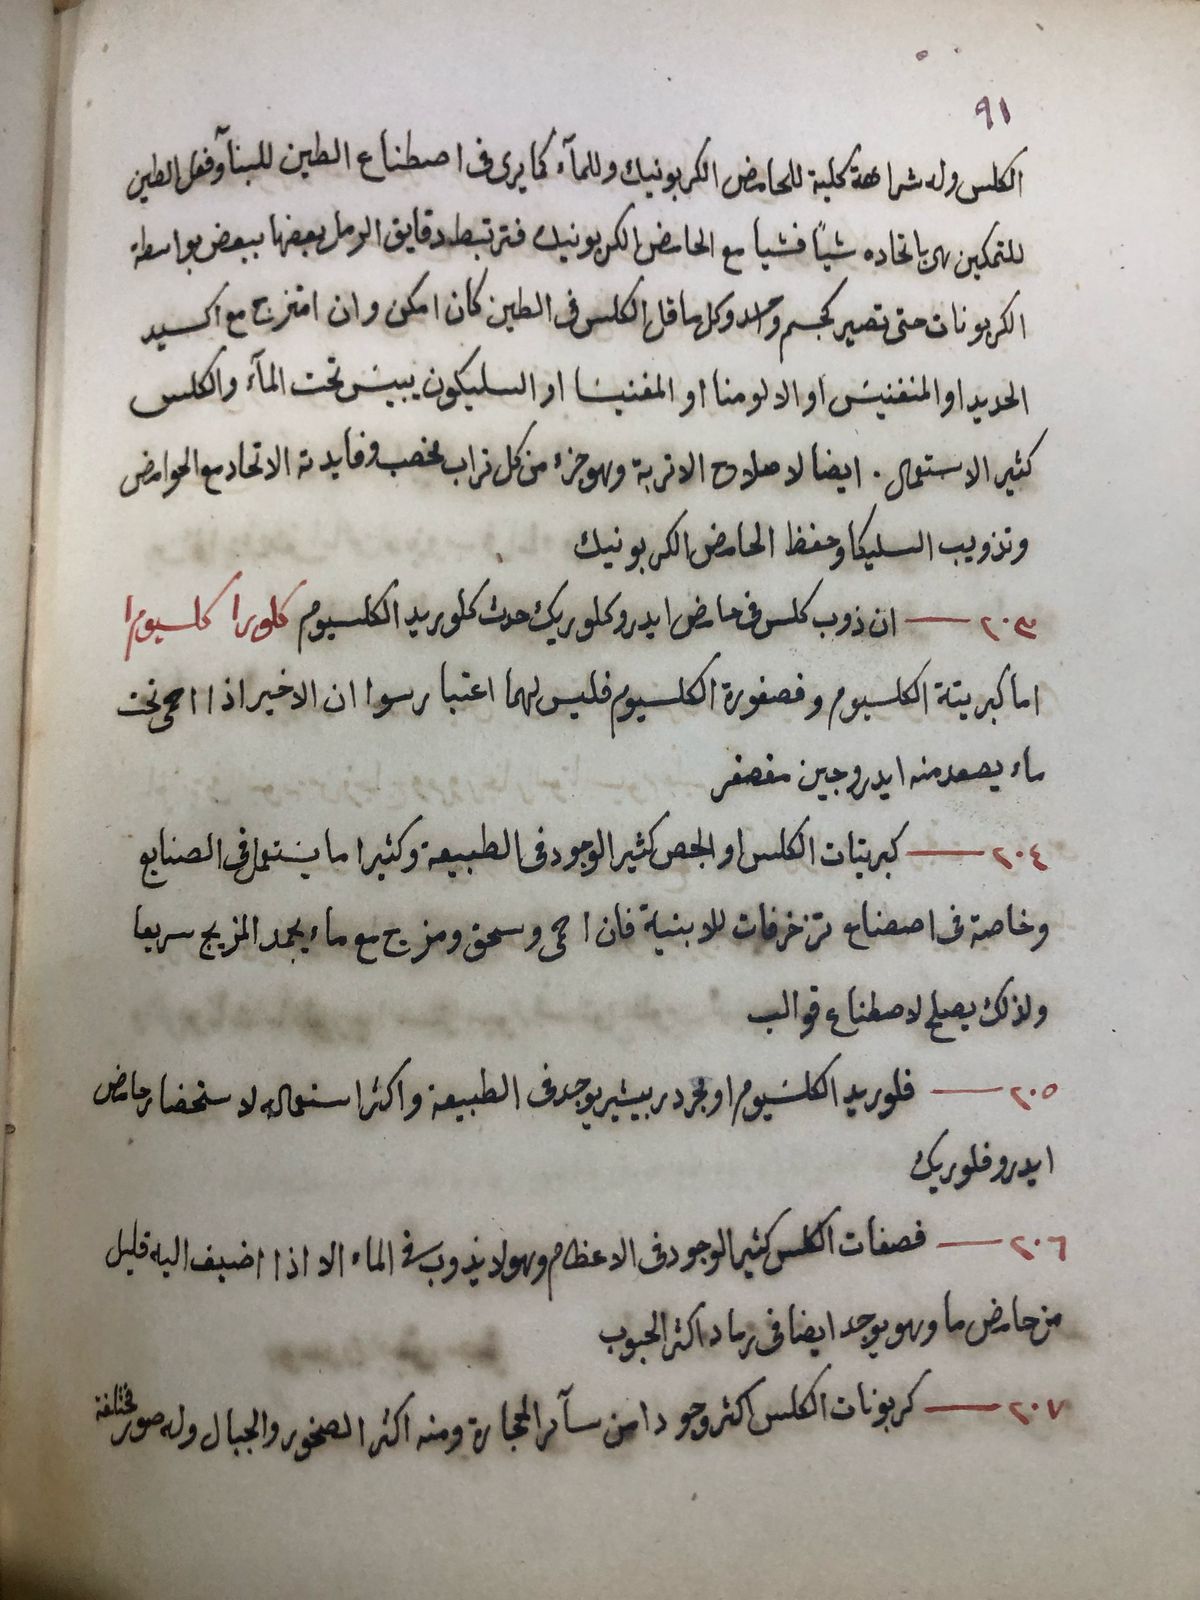 ٩١
الكلس وله شراهة كلية للحامض الكربونيك وللمآء كما يرى فى اصطناع الطين للبنآء وفعل الطين
للتمكين هى باتحاده شيًا فشيا مع الحامض الكربونيك فترتبط دقايق الرمل بعضها ببعض بواسطة
الكربونات حتى تصير كجسم واحد وكل ما قل الكلس فى الطين كان امكن وان امتزج مع اكسيد
الحديد او المنغنيس او الالومنا او المغنيسا او السليكون ييبس تحت المآء والكلس
كثير الاستعمال . ايضا لاصلاح الاتربة وهو جزء من كل تراب مخصب وفايدته الاتحاد مع الحوامض
وتذويب السليكا وحفظ الحامض الكربونيك
٢٠٣ — ان ذوب كلس فى حامض ايدروكلوريك حدث كلوريد الكلسيوم كلورا كلسيوم ا
اما كبريتة الكلسيوم وفصفورة الكلسيوم فليس لهما اعتبار سوا ان الاخير اذا احمى تحت
ماء يصعد منه ايدروجين مفصفر
٢٠٤ — كبريتات الكلس او الجص كثير الوجود فى الطبيعة وكثيرا ما يستعمل فى الصنايع
وخاصة فى اصطناع تزخرفات للابنية فان احمى وسحق ومزج مع ماء يجمد المزيج سريعا
ولذلك يصلح لاصطناع قوالب
٢٠٥ — فلوريد الكلسيوم او بجرد ربيشير يوجد فى الطبيعة واكثر استعماله لاستحضار حامض
ايدروفلوريك
٢٠٦ — فصفات الكلس كثير الوجود فى الاعظام وهو لا يذوب فى الماء الا اذا اضيف اليه قليل
من حامض ما وهو يوجد ايضا فى رماد اكثر الحبوب
٢٠٧ — كربونات الكلس اكثر وجودا من سآئر الحجارة ومنه اكثر الصخور والجبال وله صور مختلفة